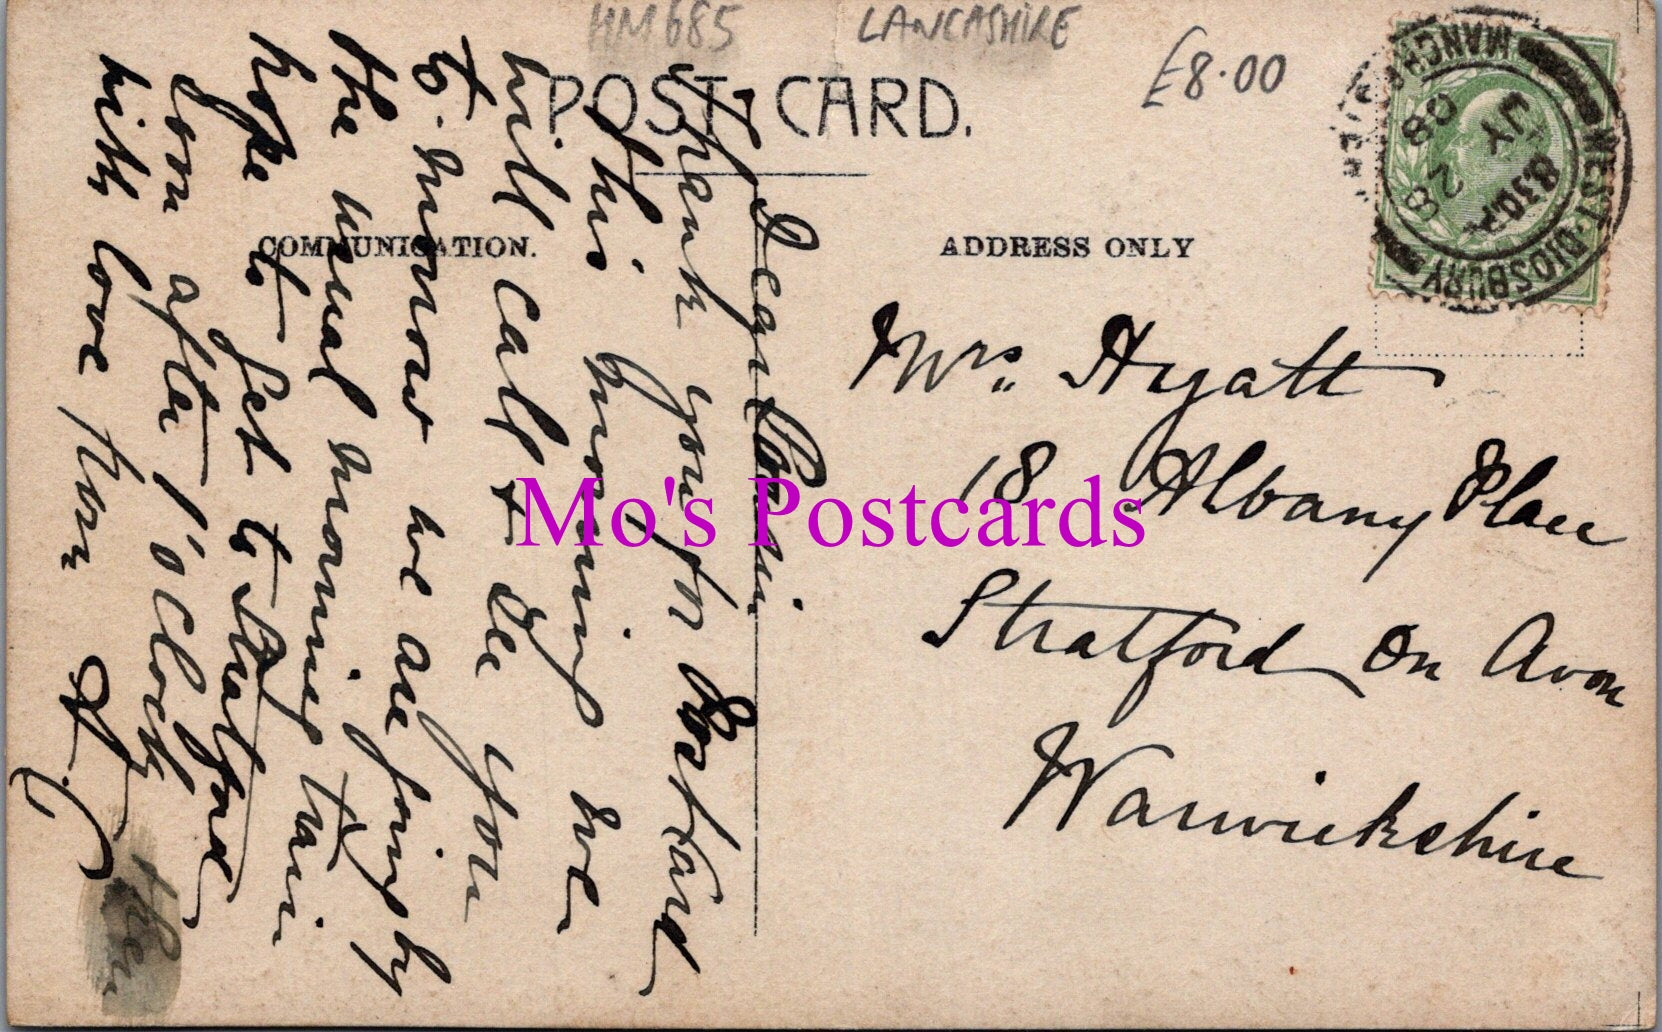 HM685
LANCASHIRE
£8.00
POST CARD.
COMMUNICATION.
ADDRESS ONLY
WEST·DIDSBURY
MANCHESTER
8.30PM
JY 28
08
Mrs. Hyatt
18 Albany Place
Stratford on Avon
Warwickshire
Dear Cousin
Thank you for Post Card
this morning we
will call & see you
to-morrow we are going by
the usual morning train
hope to get to Stratford
soon after 1 o'clock
with love from
Mo's Postcards